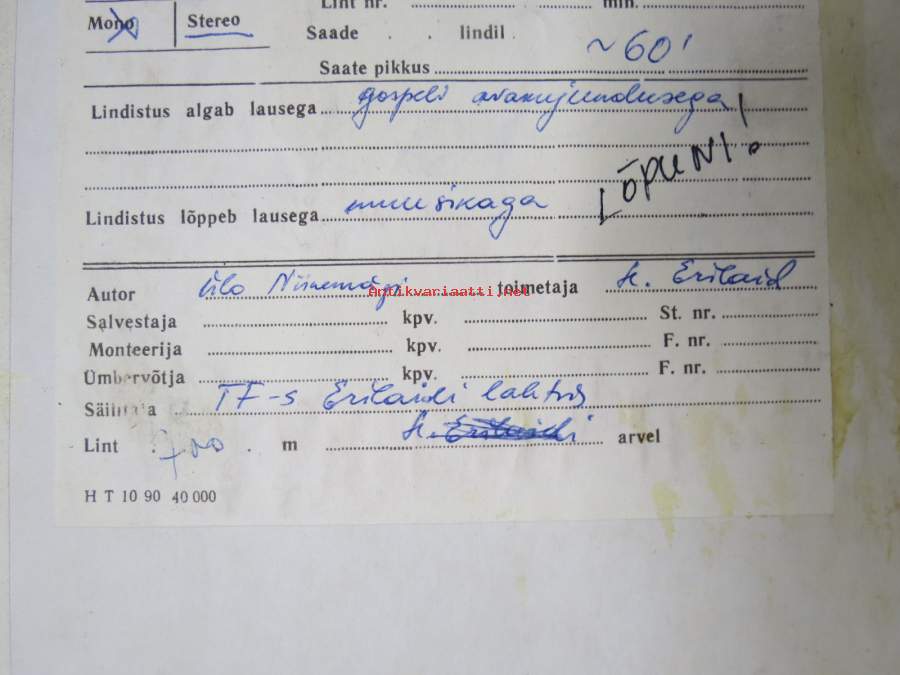 Lint nr. min.
Mono Stereo
Saade . . lindil
Saate pikkus ~60'
Lindistus algab lausega gospeli avakujundusega
LÕPUNI!
Lindistus lõppeb lausega muusikaga
Autor Ülo Niinemägi toimetaja H. Erilaid
Antikvariaatti.net
Salvestaja kpv. St. nr.
Monteerija kpv. F. nr.
Ümbervõtja kpv. F. nr.
Säilitaja TF-s Erilaidi lahtris
Lint 700 m H. Erilaidi arvel
H T 10 90 40 000